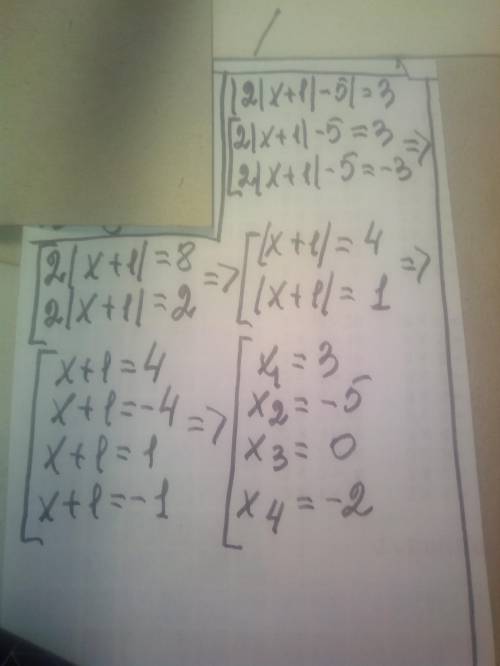 |2|x+1|-5|=3
[2|x+1|-5=3
2|x+1|-5=-3 =>
[2|x+1|=8
2|x+1|=2 =>
[|x+1|=4
|x+1|=1 =>
[x+1=4
x+1=-4
x+1=1
x+1=-1 =>
[x1=3
x2=-5
x3=0
x4=-2